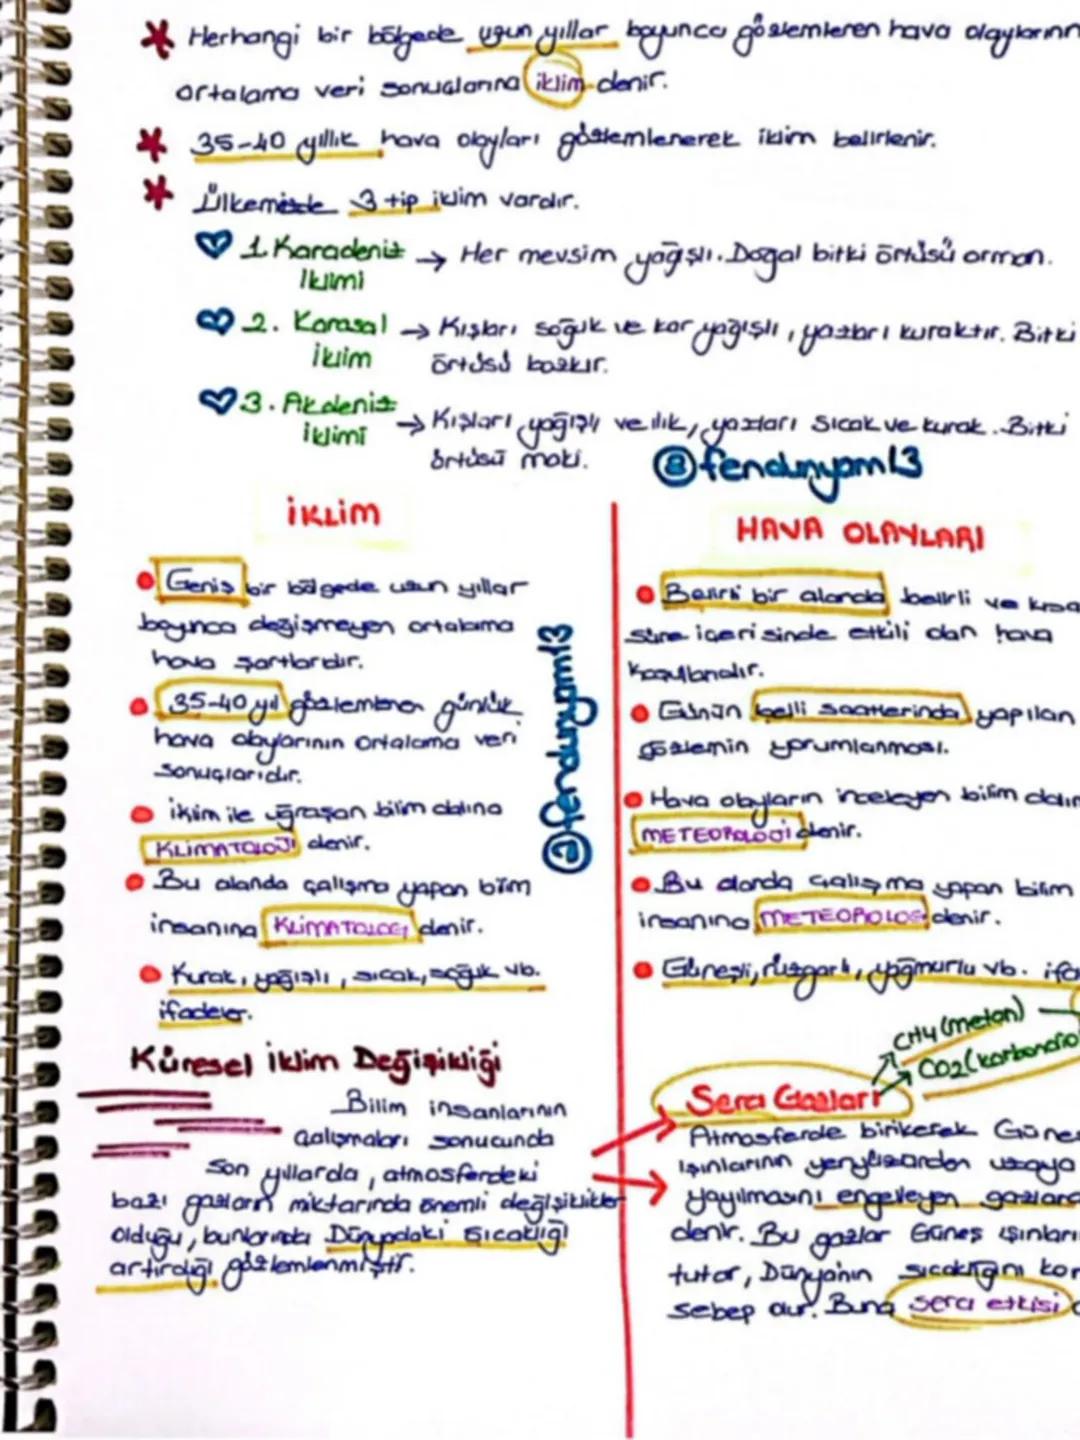 Herhangi bir bölgede uzun yıllar boyunca gözlemlenen hava olaylarının
ortalama veri sonuçlarına iklim denir.
35-40 yıllık hava olayları gözlemlenerek iklim belirlenir.
Ülkemizde 3 tip iklim vardır.
1. Karadeniz İklimi → Her mevsim yağışlı. Doğal bitki örtüsü orman.
2. Karasal iklim → Kışları soğuk ve kar yağışlı, yazları kuraktır. Bitki
örtüsü bozkır.
3. Akdeniz iklimi → Kışları yağışlı ve ılık, yazları sıcak ve kurak. Bitki
örtüsü maki.
@fendunyam13
İKLİM
Geniş bir bölgede uzun yıllar
boyunca değişmeyen ortalama
hava şartlarıdır.
35-40 yıl gözlemlenen günlük
hava olaylarının ortalama veri
sonuçlarıdır.
iklim ile uğraşan bilim dalına
KLİMATOLOJİ denir.
Bu alanda çalışma yapan bilim
insanına KLİMATOLOG denir.
Kurak, yağışlı, sıcak, soğuk vb.
ifadeler.
@fendunyam13
HAVA OLAYLARI
Belirli bir alanda belirli ve kısa
süre içerisinde etkili olan hava
koşullarıdır.
Günün belli saatlerinde yapılan
gözlemin yorumlanması.
Hava olayların inceleyen bilim
METEOROLOJİ denir.
Bu alanda çalışma yapan bilim
insanına METEOROLOG denir.
Güneşli, rüzgarlı, yağmurlu vb.
Küresel İklim Değişikliği
Bilim insanlarının
çalışmaları sonucunda
son yıllarda, atmosferdeki
bazı gazların miktarında önemli değişiklikler
olduğu, bunlarında Dünyadaki sıcaklığı
artırdığı gözlemlenmiştir.
CH4 (metan)
CO2 (karbondio
Sera Gazları
Atmosferde birikerek Güneş
ışınlarının yeryüzünden uzaya
yayılmasını engelleyen gazlara
denir. Bu gazlar Güneş ışınları
tutar, Dünya'nın sıcaklığını
sebep olur. Buna sera etkisi